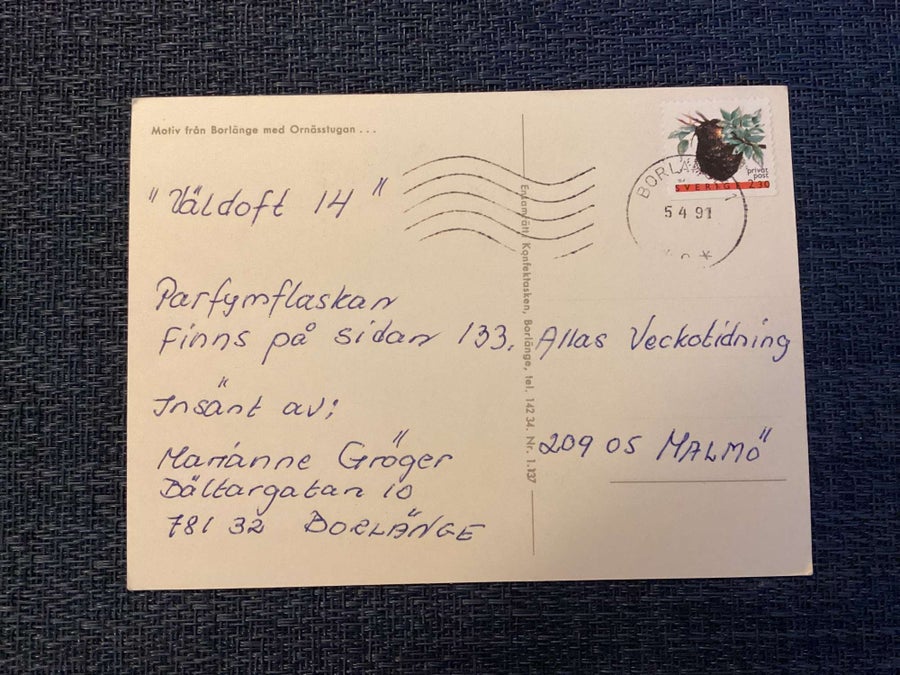 Motiv från Borlänge med Ornässtugan...
"Väldoft 14"
Parfymflaskan
Finns på sidan 133.
Insänt av:
Marianne Gröger
Bältargatan 10
781 32 BORLÄNGE
Ensamrätt: Konfektasken, Borlänge, tel. 142 34. Nr. 1.137
privat
post
SVERIGE 2.30
5 4 91
Allas Veckotidning
209 05 MALMÖ